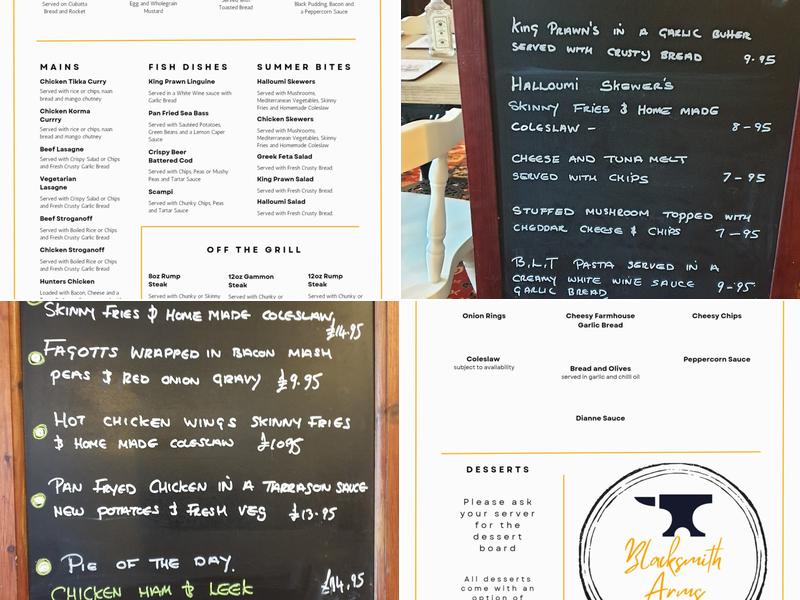 Served on Ciabatta
Bread and Rocket
Egg and Wholegrain
Mustard
Served on
Toasted Bread
Black Pudding, Bacon and
a Peppercorn Sauce
MAINS
Chicken Tikka Curry
Served with rice or chips, naan
bread and mango chutney
Chicken Korma
Currry
Served with rice or chips, naan
bread and mango chutney
Beef Lasagne
Served with Crispy Salad or Chips
and Fresh Crusty Garlic Bread
Vegetarian
Lasagne
Served with Crispy Salad or Chips
and Fresh Crusty Garlic Bread
Beef Stroganoff
Served with Boiled Rice or Chips
and Fresh Crusty Garlic Bread
Chicken Stroganoff
Served with Boiled Rice or Chips
and Fresh Crusty Garlic Bread
Hunters Chicken
Loaded with Bacon, Cheese and a
FISH DISHES
King Prawn Linguine
Served in a White Wine sauce with
Garlic Bread
Pan Fried Sea Bass
Served with Sauteéd Potatoes,
Green Beans and a Lemon Caper
Sauce
Crispy Beer
Battered Cod
Served with Chips, Peas or Mushy
Peas and Tartar Sauce
Scampi
Served with Chunky Chips, Peas
and Tartar Sauce
SUMMER BITES
Halloumi Skewers
Served with Mushrooms,
Mediterranean Vegetables, Skinny
Fries and Homemade Coleslaw
Chicken Skewers
Served with Mushrooms,
Mediterranean Vegetables, Skinny
Fries and Homemade Coleslaw
Greek Feta Salad
Served with Fresh Crusty Bread
King Prawn Salad
Served with Fresh Crusty Bread
Halloumi Salad
Served with Fresh Crusty Bread
OFF THE GRILL
8oz Rump
Steak
Served with Chunky or Skinny
12oz Gammon
Steak
Served with Chunky or
12oz Rump
Steak
Served with Chunky or
KING PRAWN'S IN A GARLIC BUTTER
SERVED WITH CRUSTY BREAD 9.95
HALLOUMI SKEWER'S
SKINNY FRIES & HOME MADE
COLESLAW - 8-95
CHEESE AND TUNA MELT
SERVED WITH CHIPS 7-95
STUFFED MUSHROOM TOPPED WITH
CHEDDAR CHEESE & CHIPS 7-95
B.L.T PASTA SERVED IN A
CREAMY WHITE WINE SAUCE 9-95
GARLIC BREAD
SKINNY FRIES & HOME MADE COLESLAW,
£14.95
FAGOTTS WRAPPED IN BACON MIASH
PEAS & RED ONION GRAVY £9.95
HOT CHICKEN WINGS SKINNY FRIES
& HOME MADE COLESLAW £1095
PAN FRYED CHICKEN IN A TARRASON SAUCE
NEW POTATOES & FRESH VEG £13.95
PIE OF THE DAY.
CHICKEN HAM & LEEK £14.95
Onion Rings
Cheesy Farmhouse
Garlic Bread
Cheesy Chips
Coleslaw
subject to availability
Bread and Olives
served in garlic and chilli oil
Peppercorn Sauce
Dianne Sauce
DESSERTS
Please ask
your server
for the
dessert
board
All desserts
come with an
option of
Blacksmith
Arms